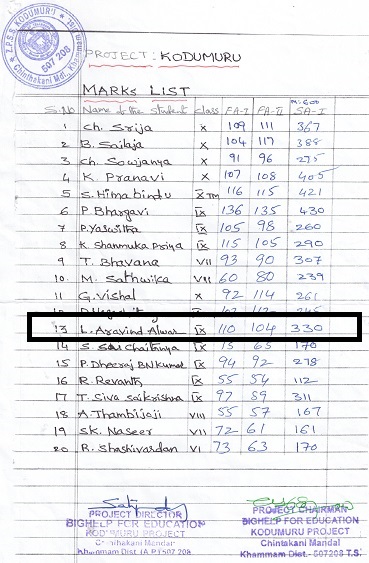 Z.P.S.S. KODUMURU
Chinthakani Mdl., Khammam
507 208
PROJECT : KODUMURU
MARKS LIST
M-600
S.No Name of the student class FA-I FA-II SA-I
1 Ch. Srija X 109 111 367
2 B. Sailaja X 104 117 388
3 Ch. Sowjanya X 91 96 275
4 K. Pranavi X 107 108 405
5 S. Himabindu X TM 116 115 421
6 P. Bhargavi IX 136 135 430
7 P. Yaswitha IX 105 98 260
8 K. Shanmuka Priya IX 115 105 290
9 T. Bhavana VII 93 90 307
10. M. Sathwika VII 60 80 239
11 G. Vishal X 92 114 261
13 L. Aravind Alwar IX 110 104 330
14 S. Sai Chaitanya IX 75 65 170
15 P. Dheeraj BN Kumar IX 94 92 278
16 R. Revanth IX 55 54 112
17 T. Siva saikrishna IX 97 89 311
18 A. Thambisaji VIII 55 57 167
19 SK. Naseer VII 72 61 161
20 R. Shashivardan VI 73 63 170
PROJECT DIRECTOR
BIGHELP FOR EDUCATION
KODUMURU PROJECT
Chinthakani Mandar
Khammam Dist (A.P) 507 208
PROJECT CHAIRMAN
BIGHELP FOR EDUCATION
KODUMURU PROJECT
Chintakani Mandar
Khammam Dist.- 507208 T.S.